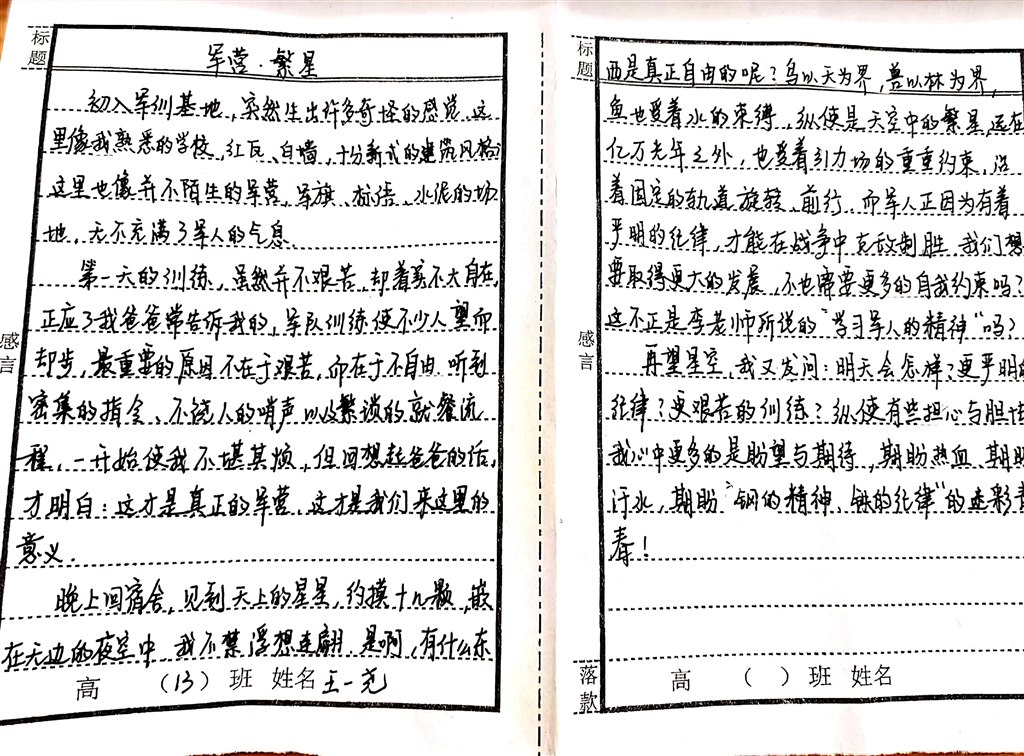 标题
军营·繁星
初入军训基地,突然生出许多奇怪的感觉.这
里像我熟悉的学校,红瓦、白墙,十分新式的建筑风格,
这里也像并不陌生的军营,军旗、标语、水泥的场
地,无不充满了军人的气息.
第一天的训练,虽然并不艰苦,却着实不大自在,
正应了我爸爸常告诉我的,军队训练使不少人望而
却步,最重要的原因不在于艰苦,而在于不自由.听到
密集的指令、不饶人的哨声以及繁琐的就餐流
程,一开始使我不堪其烦,但回想起爸爸的话,
才明白:这才是真正的军营,这才是我们来这里的
意义.
晚上回宿舍,见到天上的星星,约摸十几颗,嵌
在无边的夜空中.我不禁浮想连翩.是啊,有什么东
感言
高 (13) 班 姓名 王一尧
标题
西是真正自由的呢?鸟以天为界,兽以林为界,
鱼也受着水的束缚,纵使是天空中的繁星,远在
亿万光年之外,也受着引力场的重重约束,沿
着固定的轨道旋转、前行.而军人正因为有着
严明的纪律,才能在战争中克敌制胜.我们想
要取得更大的发展,不也需要更多的自我约束吗?
这不正是李老师所说的“学习军人的精神”吗?
再望星空,我又发问:明天会怎样?更严明的
纪律?更艰苦的训练?纵使有些担心与胆怯
我心中更多的是盼望与期待,期盼热血,期盼
汗水,期盼“钢的精神、铁的纪律”的迷彩青
春!
感言
落款
高 ( ) 班 姓名